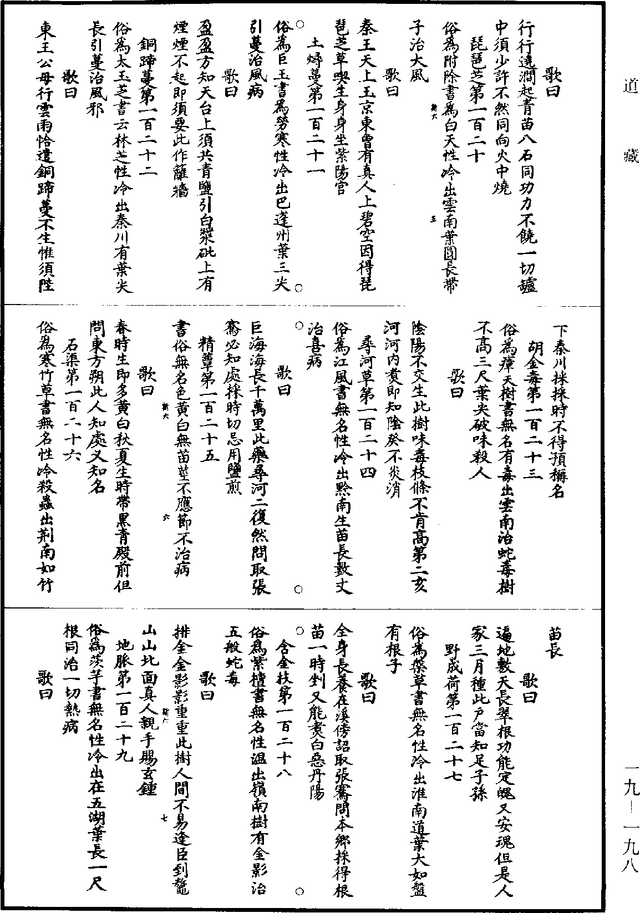 道藏
歌曰
行行遶澗起青苗八石同功力不饒一切壚
中須少許不然同向火中燒
琵琶芝第一百二十
俗為附除書為白天性冷出雲南葉圓長帶
子治大風
歌曰
秦王天上玉京東曾有真人上碧空因得琵
琶芝草喫生身身坐紫陽宮
土燖蔓第一百二十一
俗為巨玉書為勞寒性冷出巴逢州葉三尖
引蔓治風病
歌曰
盈盈方知天台上須共青鹽引白漿砒上有
煙煙不起即須要此作蘺牆
銅蹄蔓第一百二十二
俗為太玉芝書云林芝性冷出秦川有葉尖
長引蔓治風邪
歌曰
東王公母行雲雨恰遣銅蹄蔓不生惟須陛
下秦川採採時不得預稱名
胡金毒第一百二十三
俗為瘴天樹書無名有毒出雲南治蛇毒樹
不高三尺葉尖破味殺人
歌曰
陰陽不交生此樹味毒枝條不肯高第二亥
河河內煑即知陰癸不炎消
尋河草第一百二十四
俗為江風書無名性冷出黔南生苗長數丈
治喜病
歌曰
巨海海長千萬里此藥尋河二復然問取張
騫必知處採時切忌用鹽煎
精蕈第一百二十五
書俗無名色黃白無苗莖不應節不治病
歌曰
春時生即多黃白秋夏生時帶黑青殿前但
問東方朔此人知處又知名
石渠第一百二十六
俗為寒竹草書無名性冷殺蟲出荆南如竹
苗長
歌曰
遍地數天長翠根功能定魄又安魂但是人
家三月種此戶當知足子孫
野成荷第一百二十七
俗為藥草書無名性冷出淮南道葉大如盤
有根子
歌曰
全身長養在溪傍詔取張騫問本鄉採得根
苗一時剉又能煑白惡丹陽
含金枝第一百二十八
俗為紫檀書無名性溫出嶺南樹有金影治
五般蛇毒
歌曰
排金金影影重重此樹人間不易逢臣到鼇
山山北面真人親手賜玄鍾
地脈第一百二十九
俗為茨芋書無名性冷出在五湖葉長一尺
根同治一切熱病
歌曰
一九—一九八